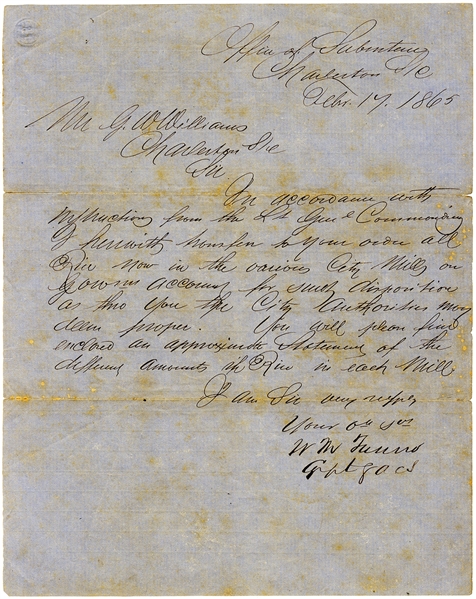 Office of Subsistence
Charleston S.C
Febr. 17. 1865
Mr G. W. Williams
Charleston S.C
Sir
In accordance with
instructions from the Lt Genl Commanding
I herewith transfer to your order all
Rice now in the various City Mills on
Govrms account, for such disposition
as thro you the City Authorities may
deem proper. You will please find
enclosed an approximate Statement of the
different amounts of Rice in each Mill
I am Sir very respy
Your ob Svt
W M
Capt & ACS